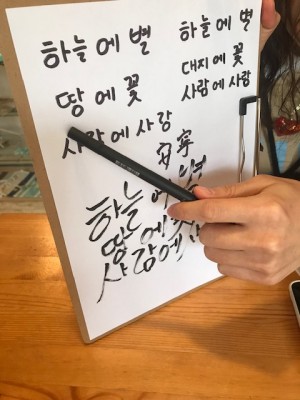 하늘에 별
땅에 꽃
사람에 사랑
하늘에 별
대지에 꽃
사람에 사랑
安寧
하늘에 별
땅에
사람에